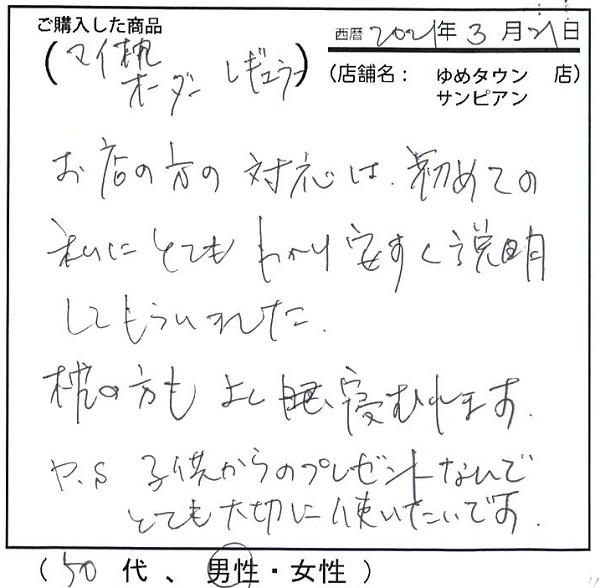 ご購入した商品
西暦 2021年 3月 21日
(マイ枕
オーダー レギュラー)
(店舗名: ゆめタウン 店)
サンピアン
お店の方の対応は、初めての
私にとてもわかり安すく説明
してもらいれした。
枕の方もよく 寝むれます。
P.S 子供からのプレゼントなので
とても大切に使いたいです。
(50代、男性・女性)